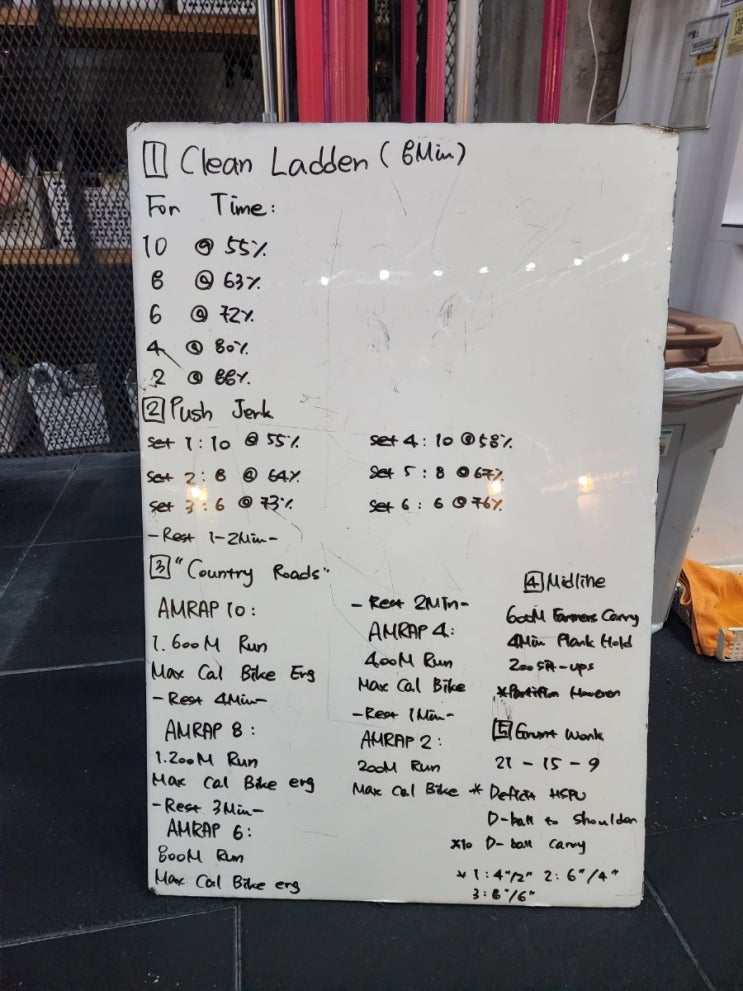 1 Clean Ladder (6Min)
For Time:
10 @ 55%
8 @ 63%
6 @ 72%
4 @ 80%
2 @ 88%
2 Push Jerk
Set 1: 10 @ 55%
Set 2: 8 @ 64%
Set 3: 6 @ 73%
Set 4: 10 @ 58%
Set 5: 8 @ 67%
Set 6: 6 @ 76%
-Rest 1-2Min-
3 "Country Roads"
AMRAP 10:
1.600M Run
Max Cal Bike Erg
-Rest 4Min-
AMRAP 8:
1.200M Run
Max Cal Bike erg
-Rest 3Min-
AMRAP 6:
800M Run
Max Cal Bike erg
-Rest 2Min-
AMRAP 4:
400M Run
Max Cal Bike
-Rest 1Min-
AMRAP 2:
200M Run
Max Cal Bike
4 Midline
600M Farmers Carry
4Min Plank Hold
200 Sit-ups
*Partition However
5 Grunt Work
21 - 15 - 9
* Deficit HSPU
D-ball to Shoulder
x10 D-ball Carry
* 1: 4"/2" 2: 6"/4"
3: 8"/6"